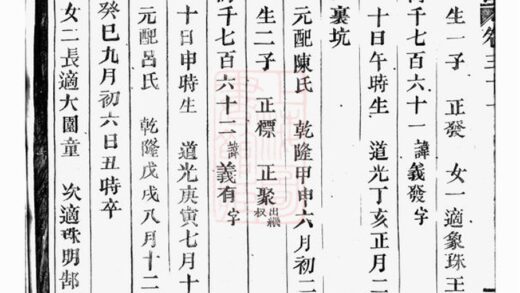 卷三十一
生一子 正發 女一適象珠王
行千七百六十一 諱義發字
十日午時生 道光丁亥正月二
裏坑
元配陳氏 乾隆甲申六月初二
生二子 正標 正聚出繼
千七百六十二 諱義有字
十日申時生 道光庚寅七月十
元配呂氏 乾隆戊戌八月十二
癸巳九月初六日丑時卒
女二長適大園童 次適珠明郜